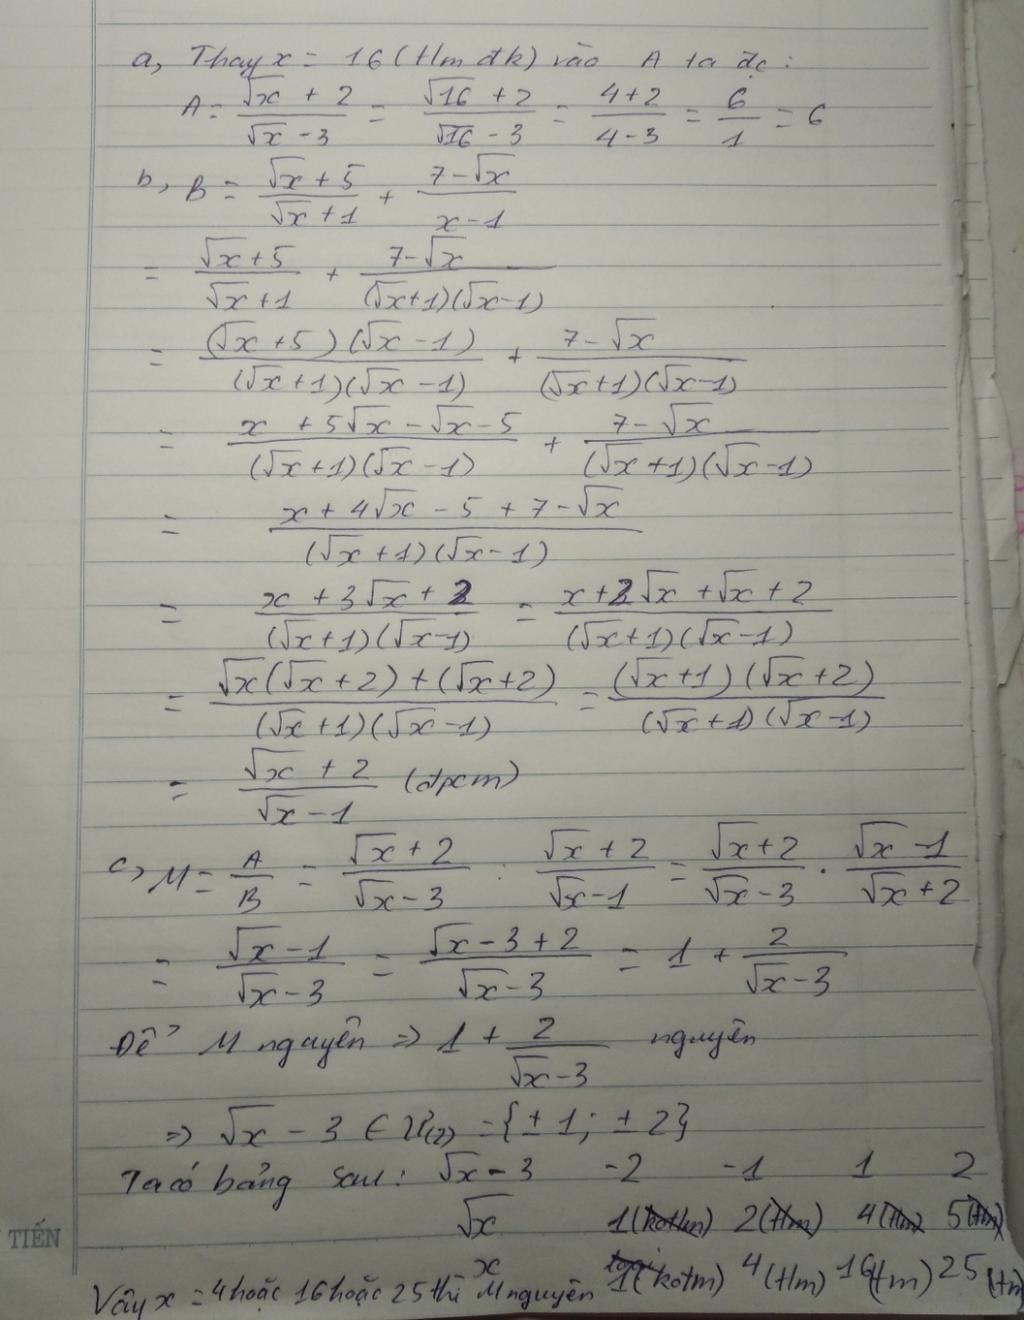 a, Thay x = 16 (tlm đk) vào A ta đc:
A = (√x + 2)/(√x - 3) = (√16 + 2)/(√16 - 3) = (4+2)/(4-3) = 6/1 = 6
b, B = (√x + 5)/(√x + 1) + (7-√x)/(x-1)
= (√x+5)/(√x+1) + (7-√x)/((√x+1)(√x-1))
= ((√x+5)(√x-1))/((√x+1)(√x-1)) + (7-√x)/((√x+1)(√x-1))
= (x + 5√x - √x - 5)/((√x+1)(√x-1)) + (7-√x)/((√x+1)(√x-1))
= (x + 4√x - 5 + 7 - √x)/((√x+1)(√x-1))
= (x + 3√x + 2)/((√x+1)(√x-1)) = (x+2√x+√x+2)/((√x+1)(√x-1))
= (√x(√x+2)+(√x+2))/((√x+1)(√x-1)) = ((√x+1)(√x+2))/((√x+1)(√x-1))
= (√x + 2)/(√x - 1) (đpcm)
c, M = A/B = (√x+2)/(√x-3) : (√x+2)/(√x-1) = (√x+2)/(√x-3) . (√x-1)/(√x+2)
= (√x-1)/(√x-3) = (√x-3+2)/(√x-3) = 1 + 2/(√x-3)
Để M nguyên => 1 + 2/(√x-3) nguyên
=> √x - 3 ∈ Ư(2) = {±1; ±2}
Ta có bảng sau: √x - 3 -2 -1 1 2
√x 1 2 4 5
TIẾN
x 1 (kotm) 4 (tlm) 16 (tm) 25 (tm)
Vậy x = 4 hoặc 16 hoặc 25 thì M nguyên